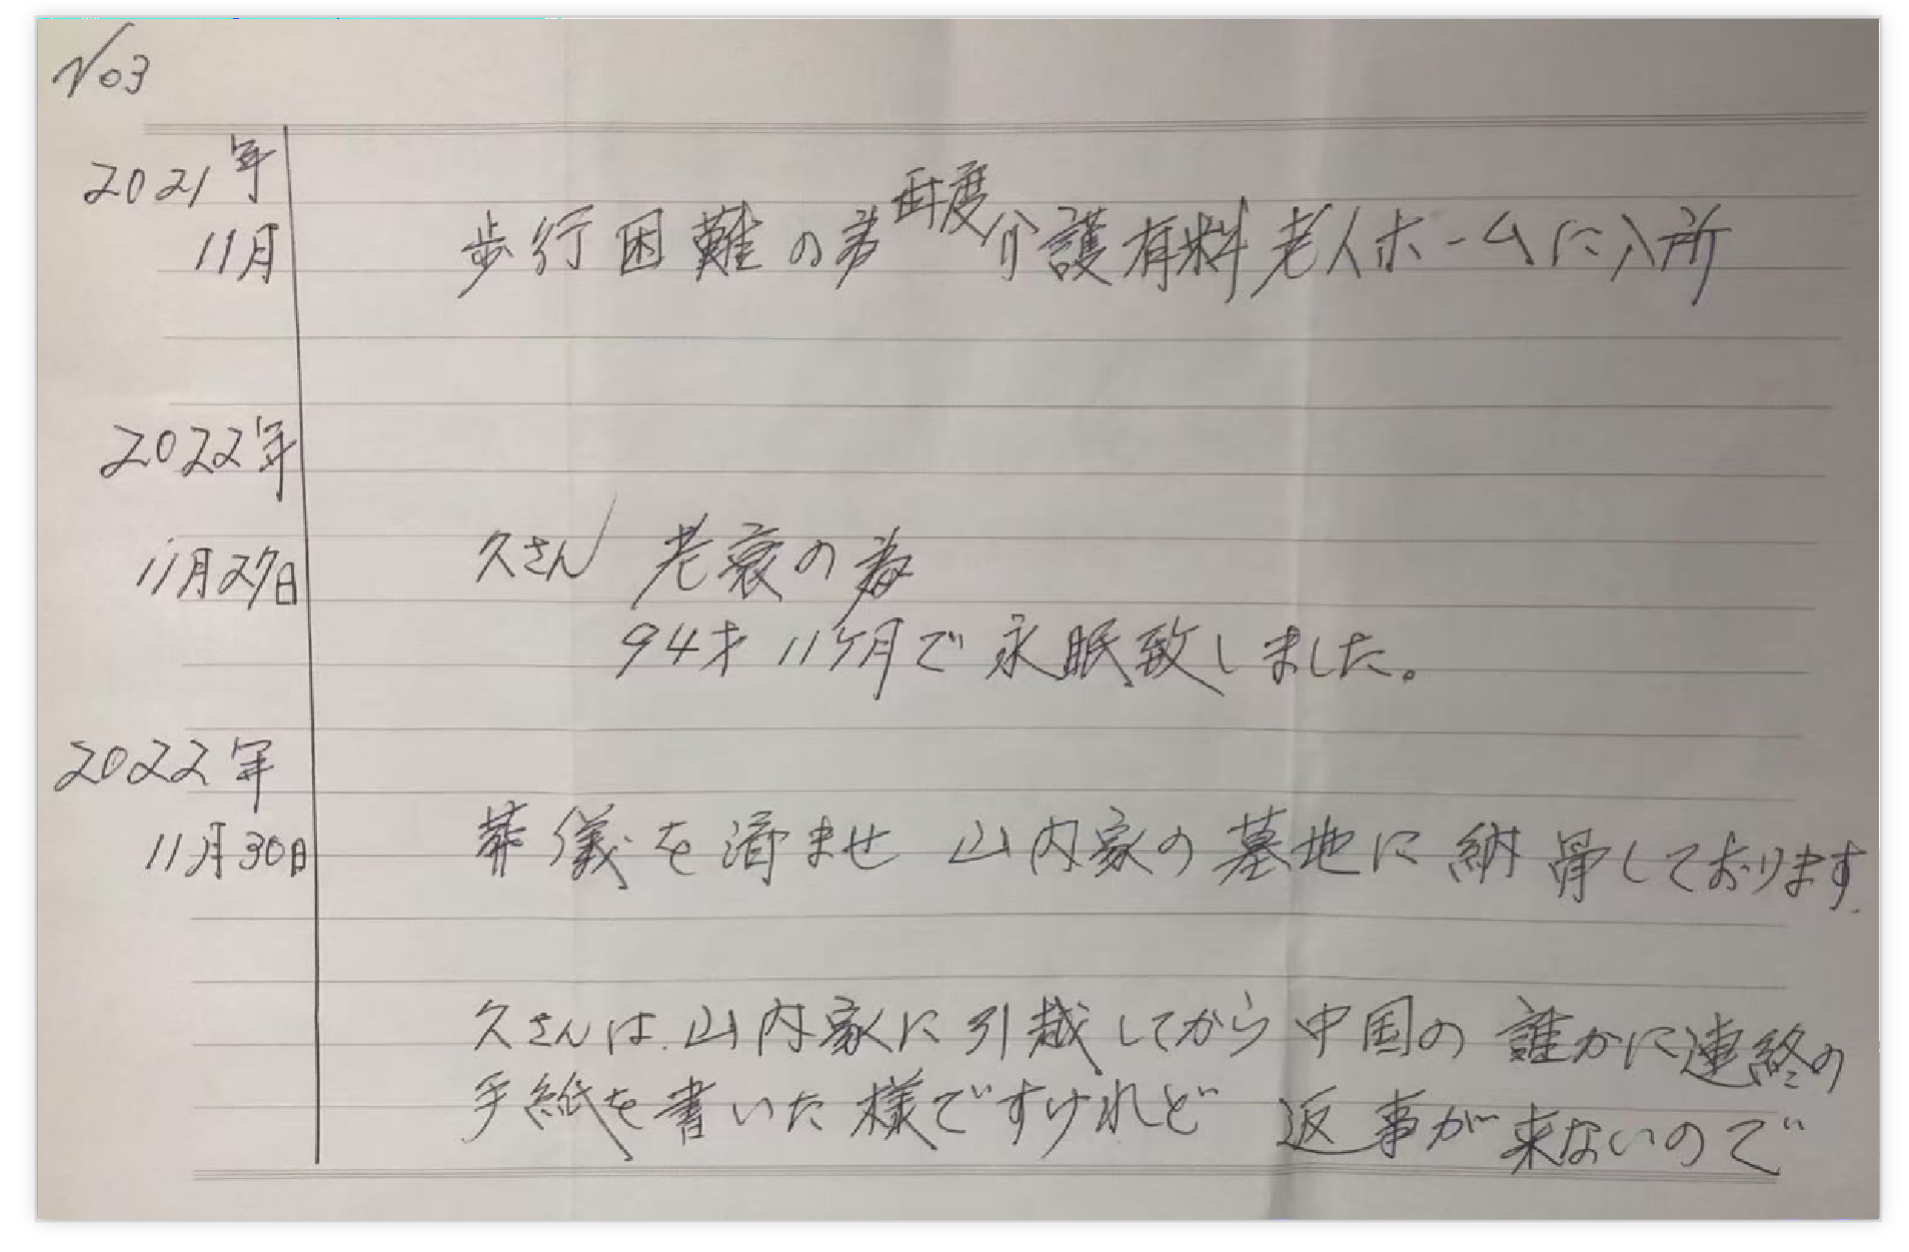 No3
2021年
11月 歩行困難の為再度介護有料老人ホームに入所
2022年
11月27日 久さん 老衰の為
94才11ヶ月で永眠致しました。
2022年
11月30日 葬儀を済ませ 山内家の墓地に納骨しております.
久さんは.山内家に引越してから中国の誰かに連絡の
手紙を書いた様ですけれど 返事が来ないので